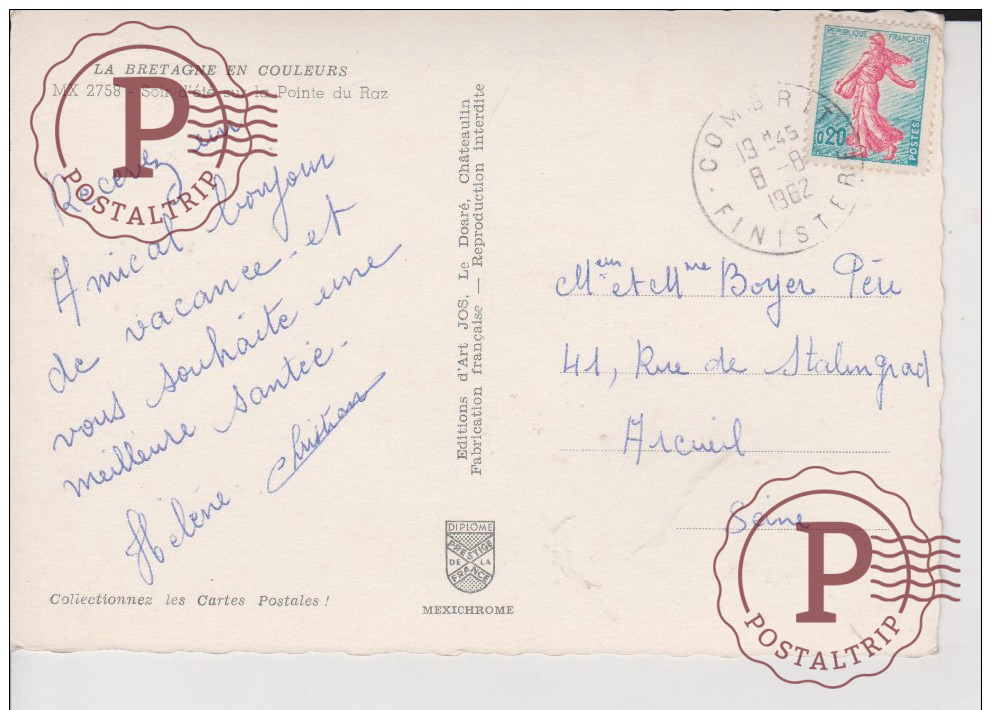 LA BRETAGNE EN COULEURS
MX 2758 - Soir d'été sur la Pointe du Raz
P
POSTALTRIP
Recevez un
Amical bonjour
de vacance - et
vous souhaite une
meilleure santée.
Hélène Christian
Collectionnez les Cartes Postales !
Editions d'Art JOS, Le Doaré, Châteaulin
Fabrication française — Reproduction interdite
DIPLOME
PRESTIGE
DE LA
FRANCE
MEXICHROME
REPUBLIQUE FRANÇAISE
0,20
POSTES
COMBRIT
19 H45
8 - 8
1962
FINISTERE
Meur et Mme Boyer Père
41, Rue de Stalingrad
Arcueil
Seine
P
POSTALTRIP